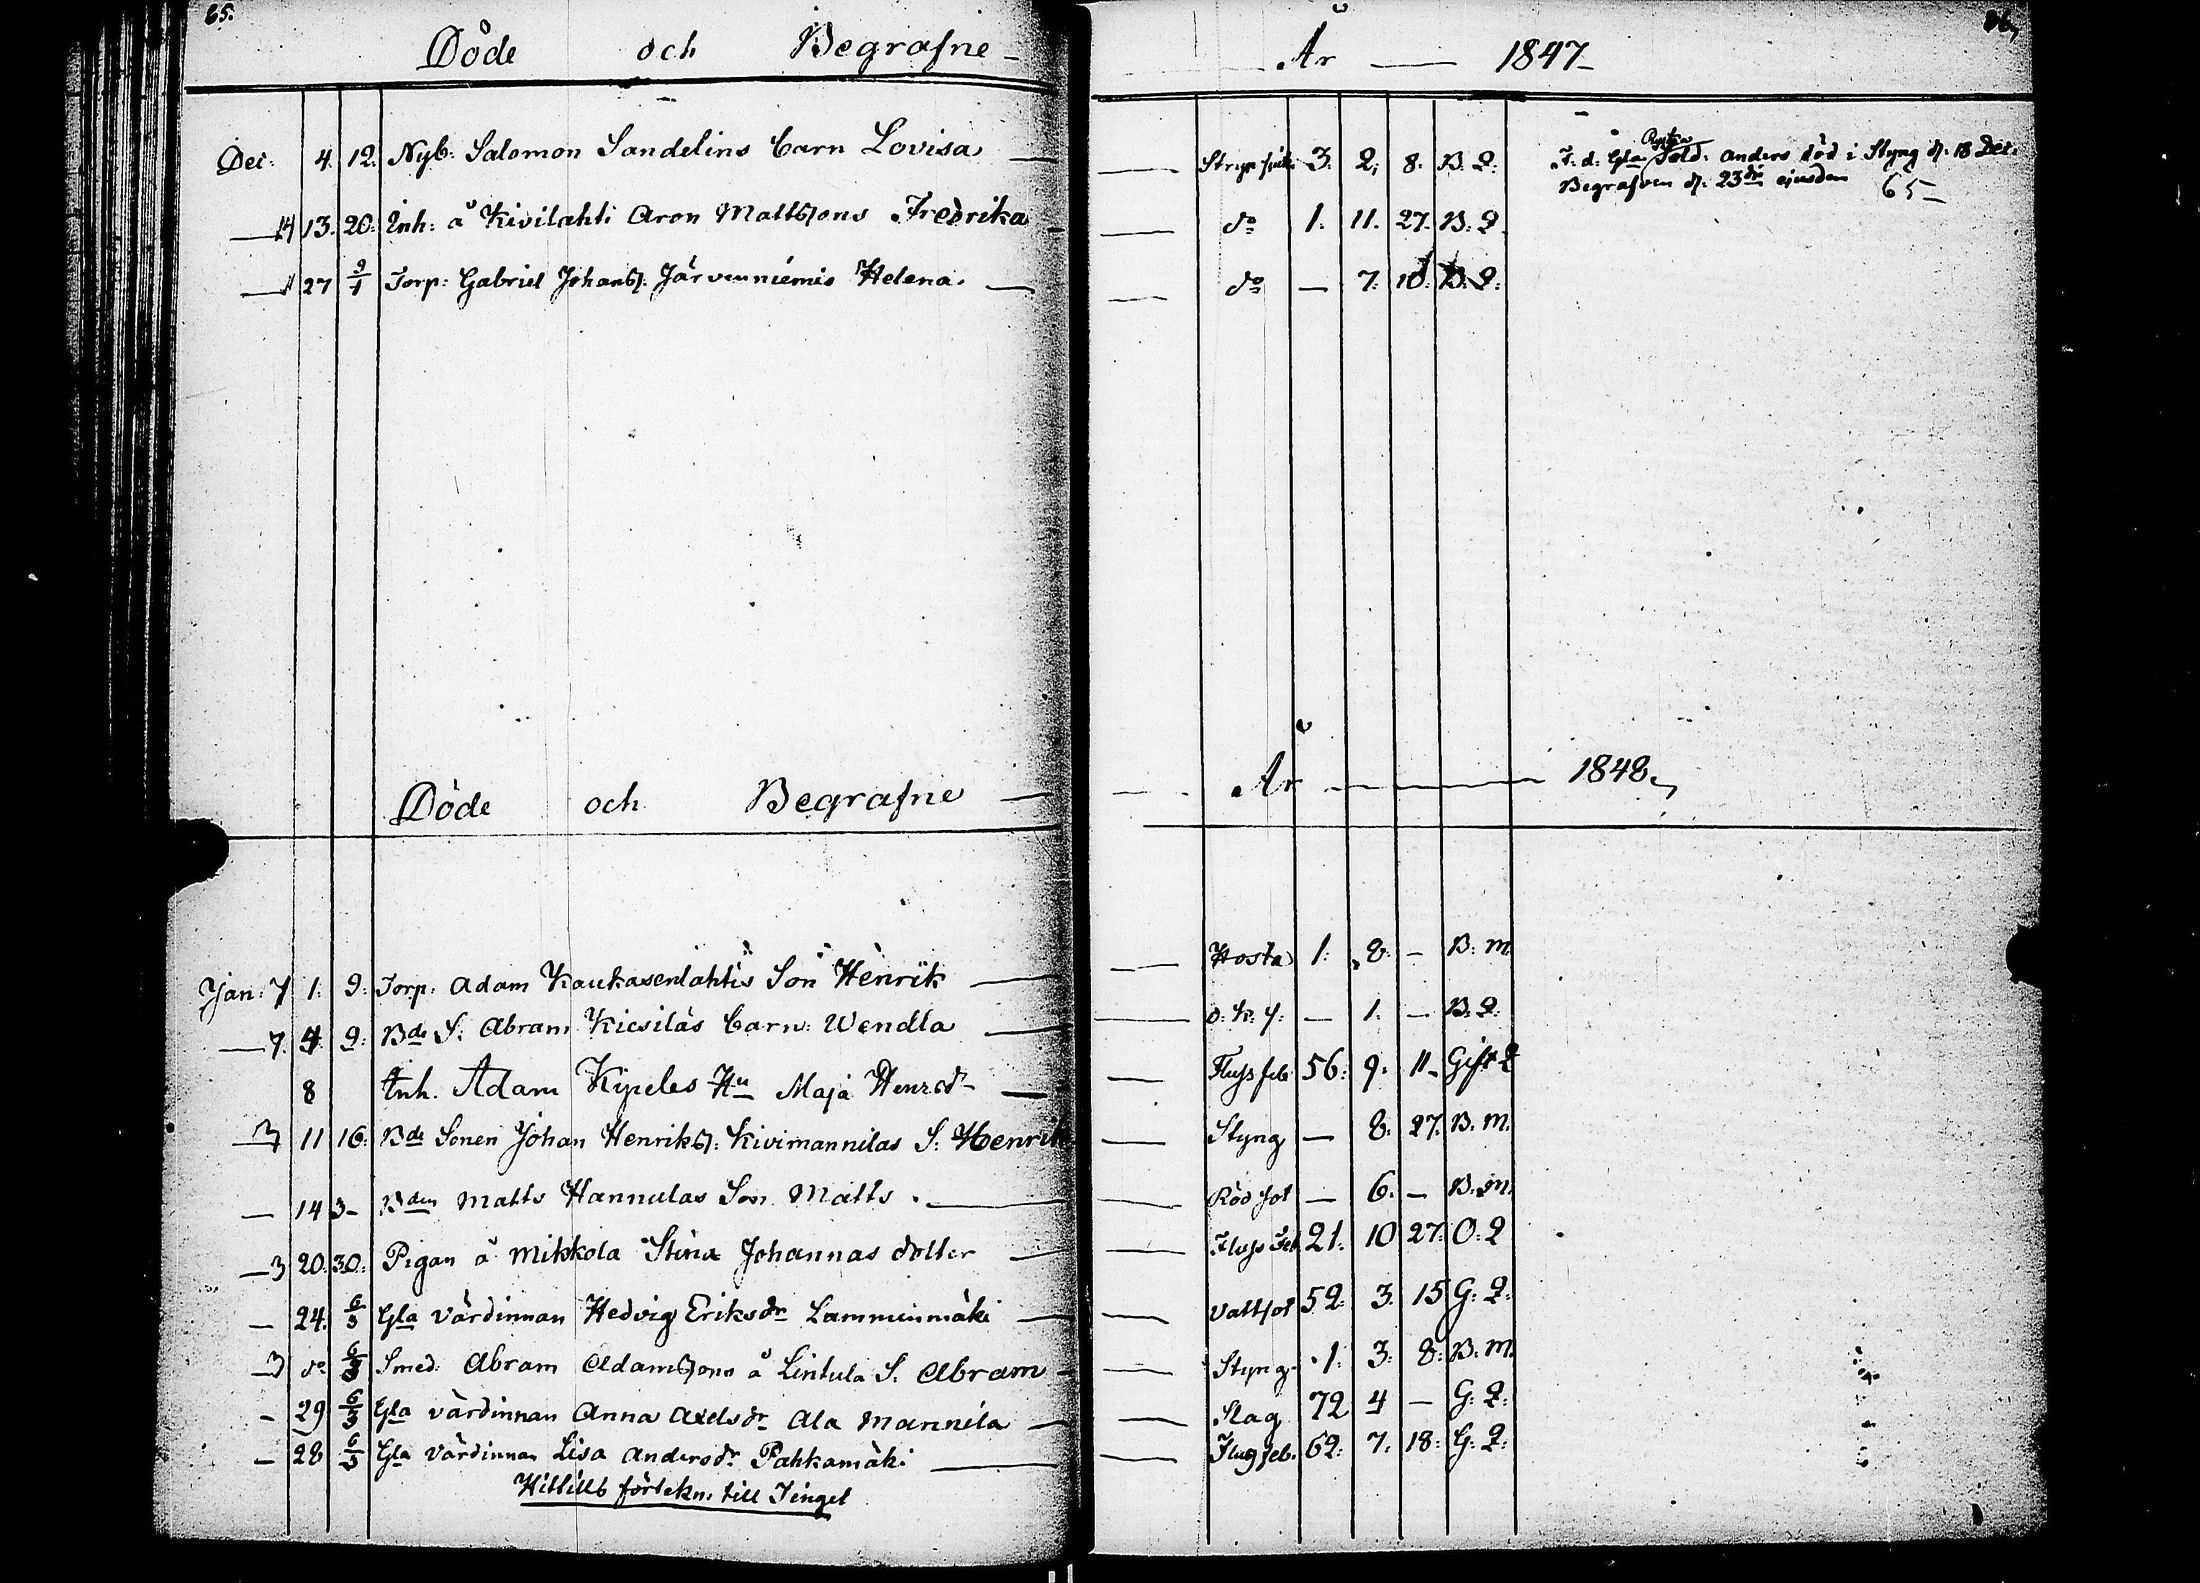 65.
Döde och Begrafne — År — 1847
Dec: 4. 12. Nyb: Salomon Sandelins barn Lovisa — 3. 2. 8. B. Q.
13. 20. Inh: å Kivilahti Aron Mattssons Fredrika — do 1. 11. 27. B. Q.
27 9/1 Torp: Gabriel Johanss. Järvenniemis Helena. — do — 7. 10. B. Q.
F. d. Gla Sold. Anders död i Styng d. 18 Dec.
Begrafven d. 23dn ejusdem 65
Döde och Begrafne — År — 1848.
Jan: 7 1. 9. Torp. Adam Kaukasenlahtis Son Henrik — Hosta 1. 8. — B. m.
7. 4. 9. Bde S. Abram barn: Wendla — o. k. s. — 1. — B. Q.
8 Inh. Adam Kypeles Hu Maja Henrsdr — Flussfeb 56. 9. 11 Gift Q
3 11 16. Bde Sonen Johan Henrikss. Kivimannilas S. Henrik — Styng — 8. 27. B. M.
14 3 Bden Matts Hannulas Son Matts. — Röd sot — 6. — B. M.
3 20. 30. Pigan å Mikkola Stina Johannas dotter — Fluss Feb 21. 10 27. O. Q
24. 6/3 Gla värdinnan Hedvig Eriksdr Lamminmäki — Vattsot 52. 3. 15 G. Q.
3 do 6/3 Smed. Abram Adamssons å Lintula S. Abram — Styng 1. 3. 8. B. M.
29 6/3 Gla värdinnan Anna Axelsdr Ala Mannila — Slag 72 4 — G. Q.
28 6/3 Gla värdinnan Lisa Andersdr Pahkamäki — Flussfeb. 62. 7. 18. G. Q.
Hittills förtekn. till